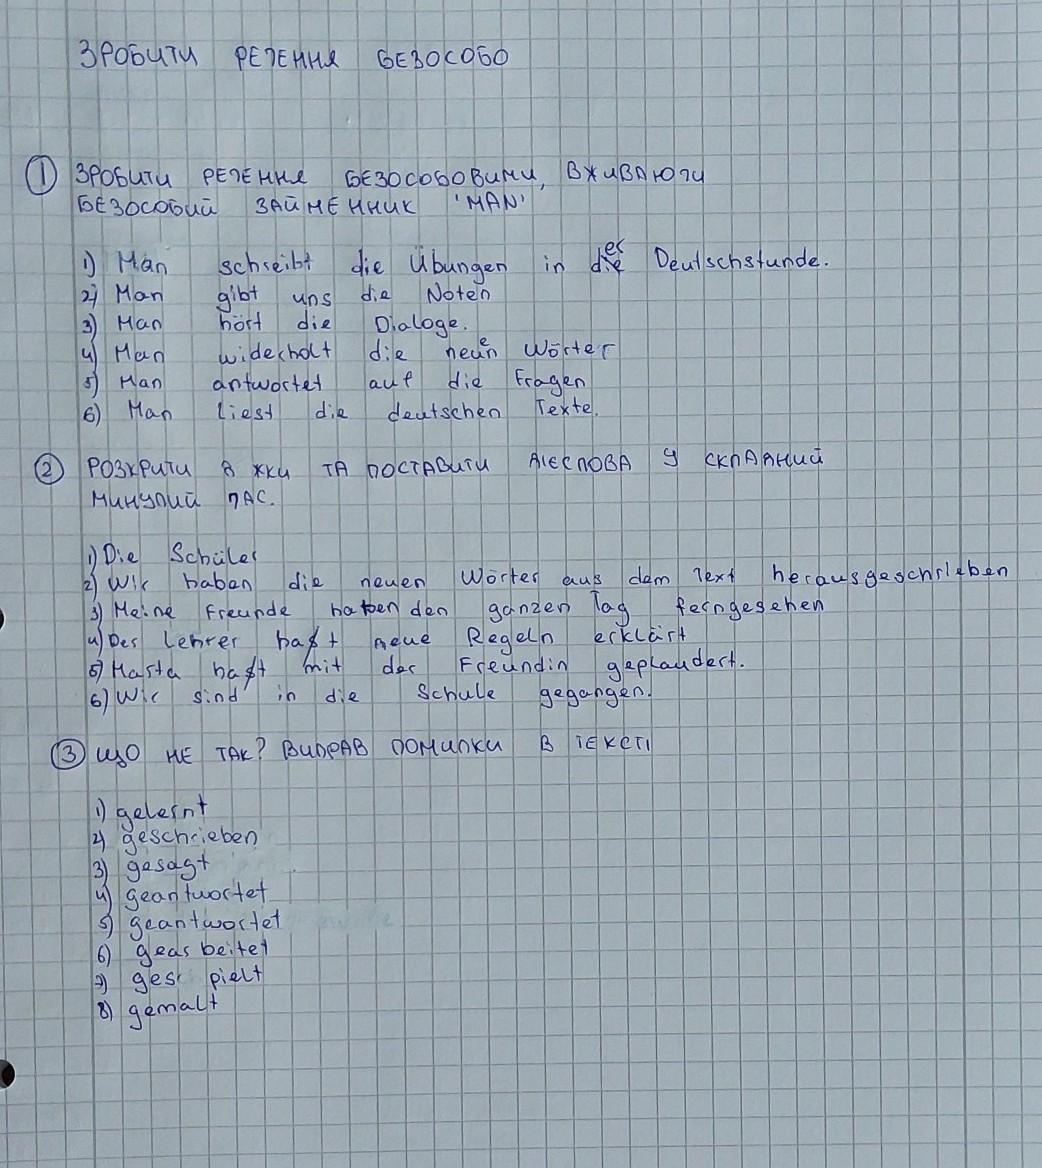 ЗРОБИТИ РЕЧЕННЯ БЕЗОСОБО
① ЗРОБИТИ РЕЧЕННЯ БЕЗОСОБОВИМИ, ВЖИВАЮЧИ
БЕЗОСОБИЙ ЗАЙМЕННИК 'MAN'
1) Man schreibt die Übungen in der Deutschstunde.
2) Man gibt uns die Noten
3) Man hört die Dialoge.
4) Man widerholt die neuen Wörter
5) Man antwortet auf die Fragen
6) Man liest die deutschen Texte.
② РОЗКРИТИ ТА ПОСТАВИТИ ДІЄСЛОВА У СКЛАДНИЙ
МИНУЛИЙ ЧАС.
1) Die Schüler
2) Wir haben die neuen Wörter aus dem Text herausgeschrieben
3) Meine Freunde haben den ganzen Tag ferngesehen
4) Der Lehrer hat neue Regeln erklärt
5) Marta hat mit der Freundin geplaudert.
6) Wir sind in die Schule gegangen.
③ ЩО НЕ ТАК? ВИПРАВ ПОМИЛКИ В ТЕКСТІ
1) gelernt
2) geschrieben
3) gesagt
4) geantwortet
5) geantwortet
6) gearbeitet
7) gespielt
8) gemalt